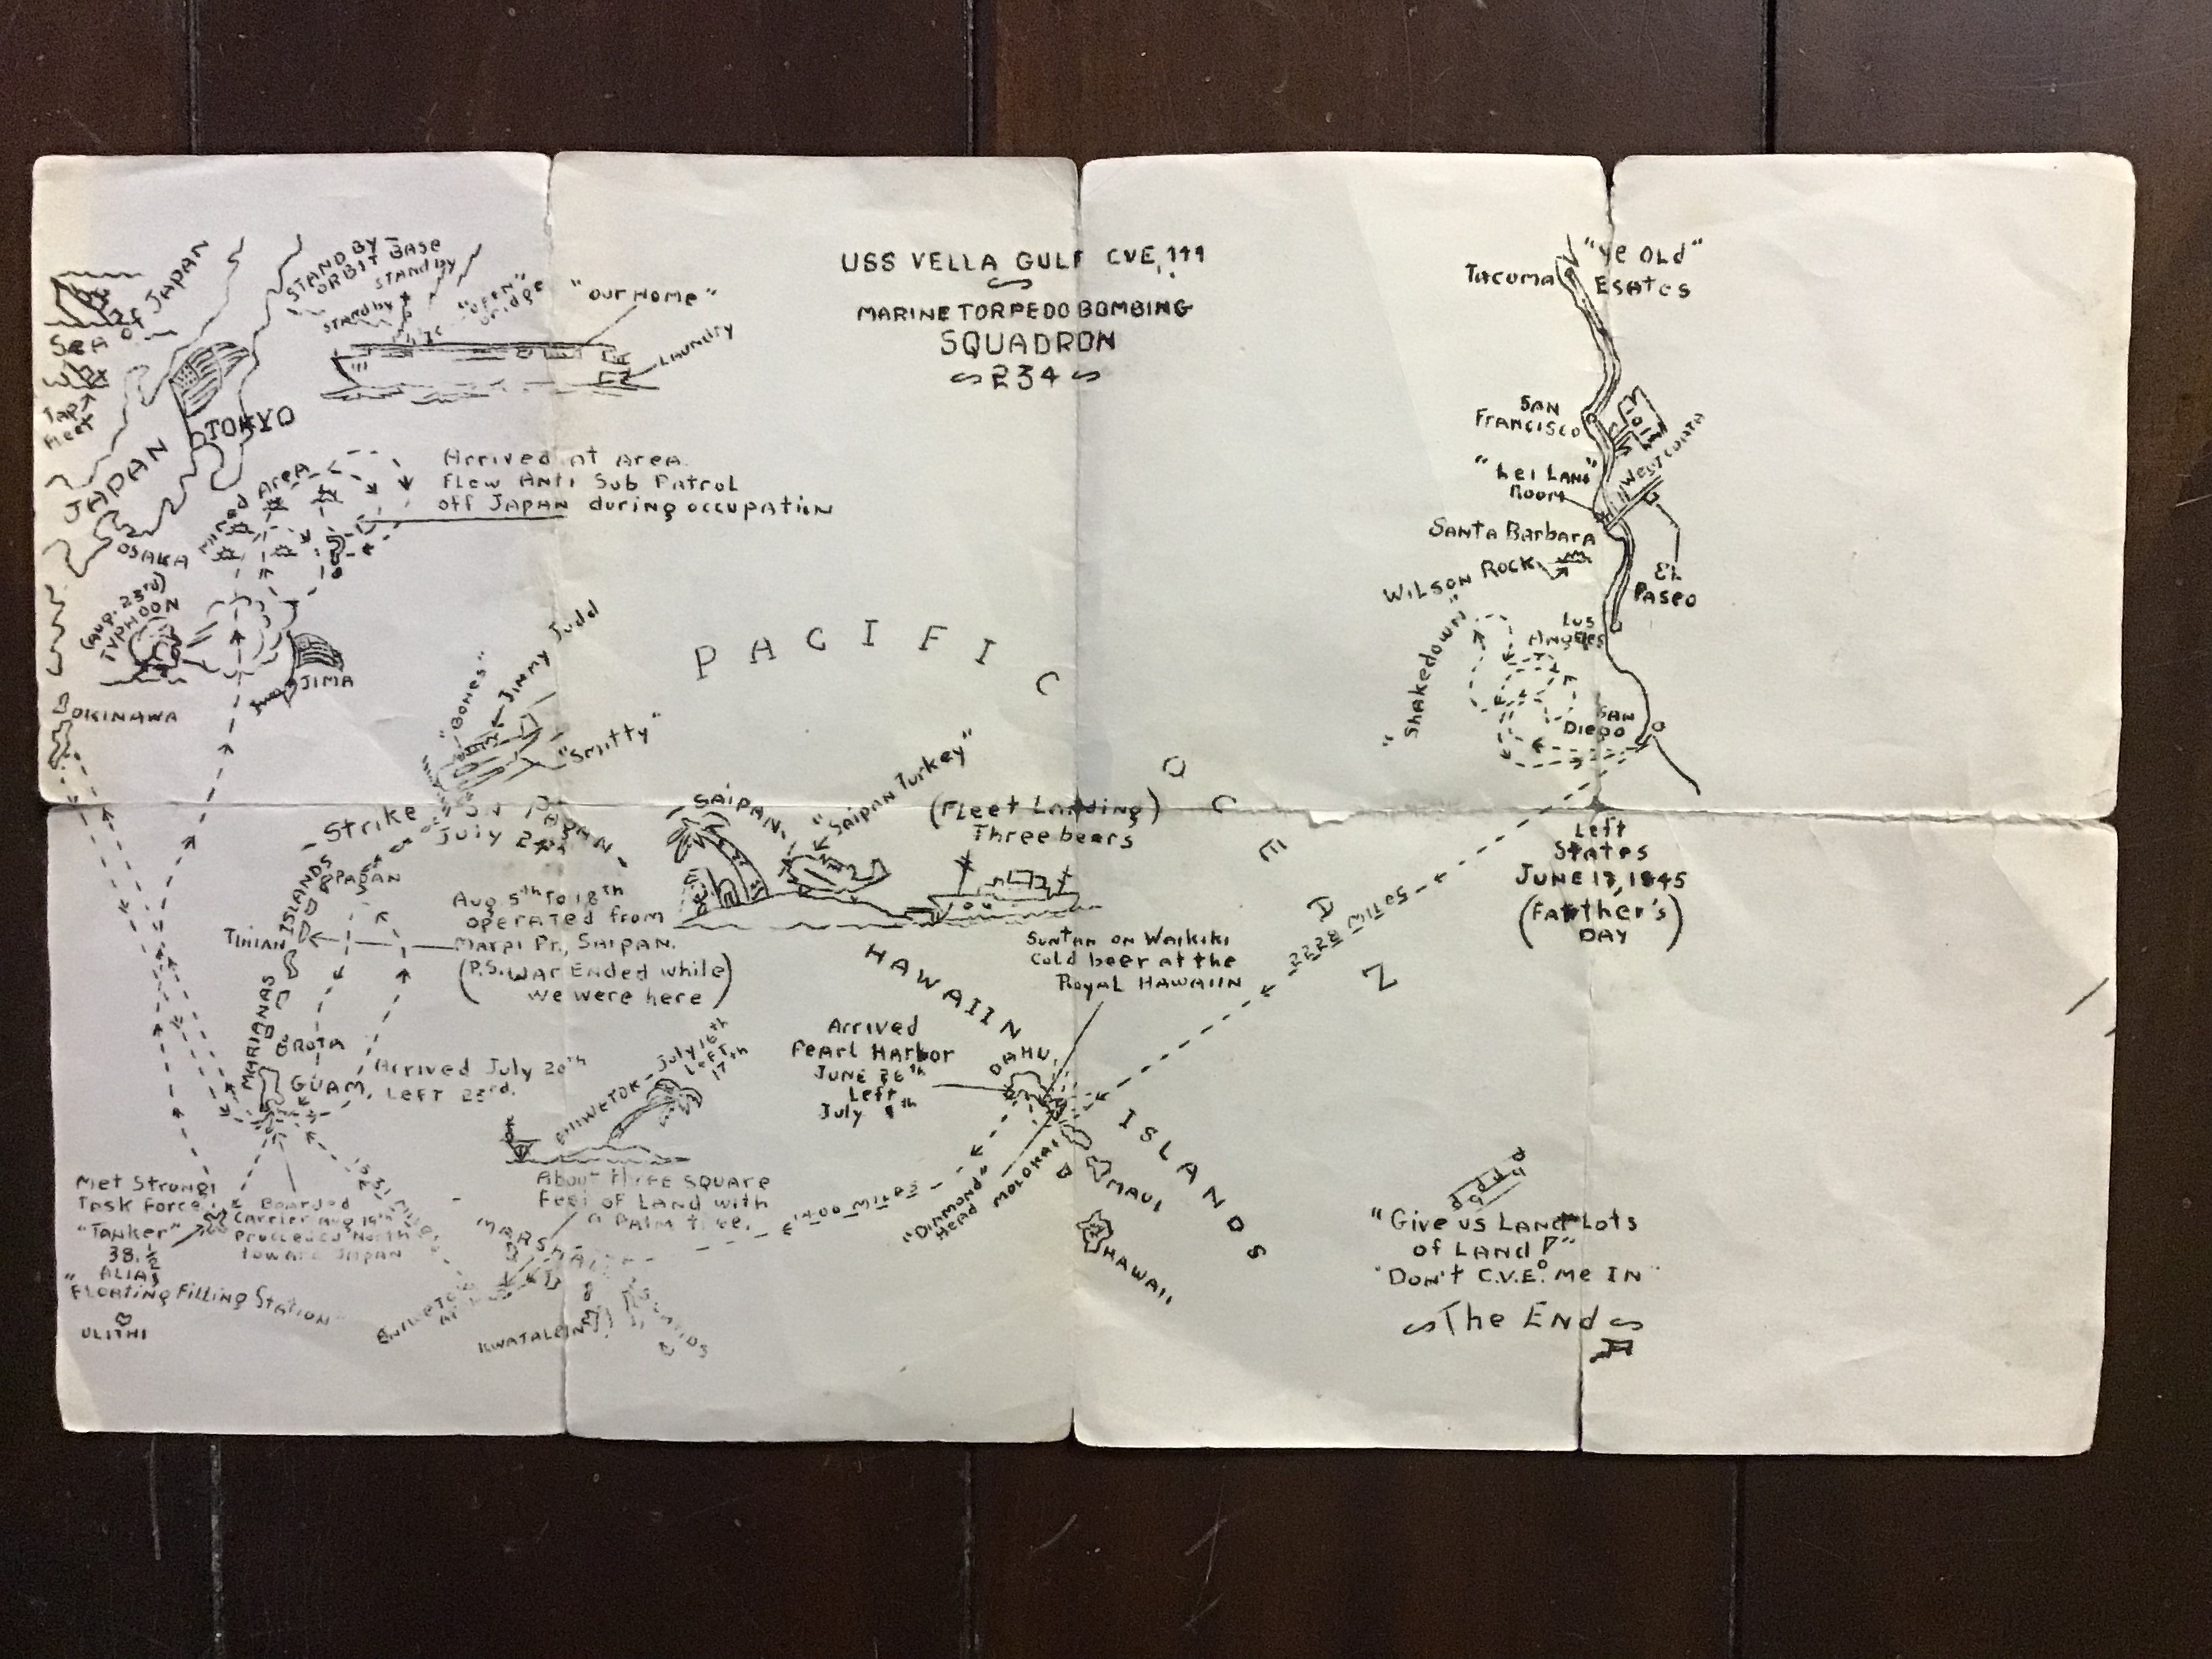 USS VELLA GULF CVE, 111
MARINE TORPEDO BOMBING
SQUADRON
234
Sea of JAPAN
Jap
Fleet
JAPAN
TOKYO
OSAKA
STAND BY -
ORBIT BASE
STAND by
STAND by
"OPEN"
bridge
"OUR HOME"
LAUNDRY
Mined Area
Arrived at Area.
Flew Anti Sub Patrol
off Japan during occupation
(Aug. 25rd)
TYPHOON
JIMA
OKINAWA
"BONES"
Jimmy Judd
"Smitty"
Strike ON PAGAN
July 24th
PACIFIC OCEAN
"Ye OLd"
Esates
Tacoma
SAN
Francisco
"Lei Lani"
Room
West coast
Santa Barbara
WILSON ROCK
EL
Paseo
Los
Angeles
"Shakedown"
SAN
Diego
Left
States
June 17, 1945
(Father's)
DAY
2228 MILES
SAIPAN
"Saipan Turkey"
(Fleet Landing)
Three bears
MARIANAS ISLANDS
PAGAN
TiNiAN
Aug 5th To 18th
operated from
Marpi Pt., SAIPAN.
(P.S. WAR Ended while)
we were here
ROTA
GUAM,
Arrived July 20th
LEFT 23rd.
ENIWETOK - July 16th
Left
17th
About three SQUARE
Feet of Land with
a Palm tree.
Met Strong
Task Force
"Tanker"
38.½
ALIAS
"FLOATING Filling Station"
ULITHI
Boarded
Carrier Aug 19th
Proceeded North
toward Japan
MARSHALL ISLANDS
ENIWETOK
KWAJALEIN
1400 MILES
HAWAIIN ISLANDS
SUNTAN ON Waikiki
Cold beer at the
Royal HAWAIIN
Arrived
Pearl Harbor
JUNE 26th
Left
July 9th
OAHU
"DIAMOND"
Head
MOLOKAI
MAUI
HAWAII
"Give us Land Lots
of LAND"
"Don't C.V.E. me IN"
The End